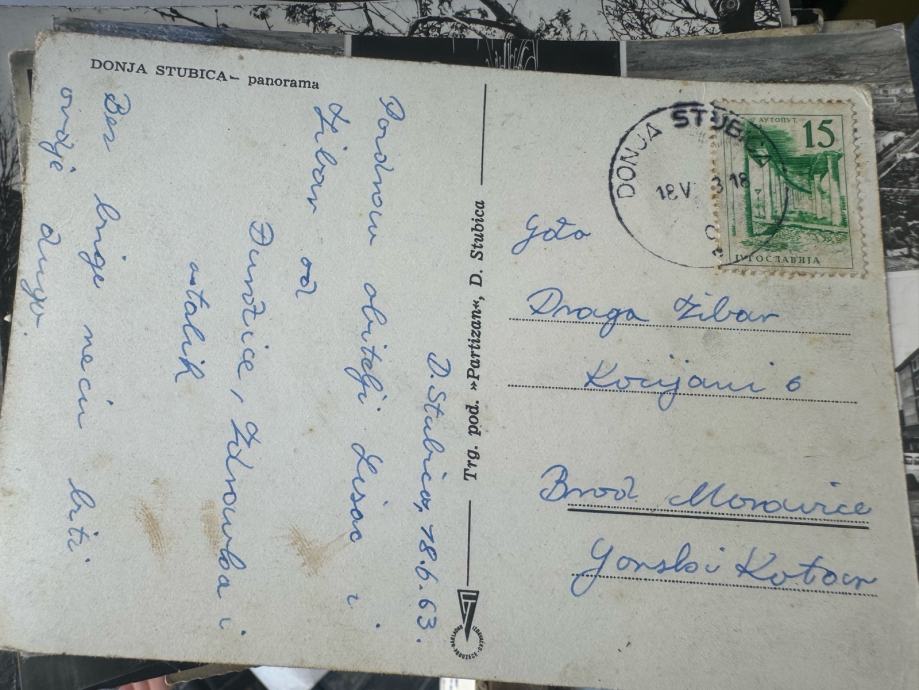 DONJA STUBICA – panorama
D. Stubica, 18.6.63.
Pozdrav obitelji Lisac i
Žibar od
Đurđice, Zdravka i
ostalih
Bez brige neću biti
ovdje dugo.
Trg. pod. »Partizan«, D. Stubica
DONJA STUBICA
18 V 3 18
АУТОПУТ
15
ЈУГОСЛАВИЈА
Draga Žibar
6
Brod Moravice
Gorski Kotar